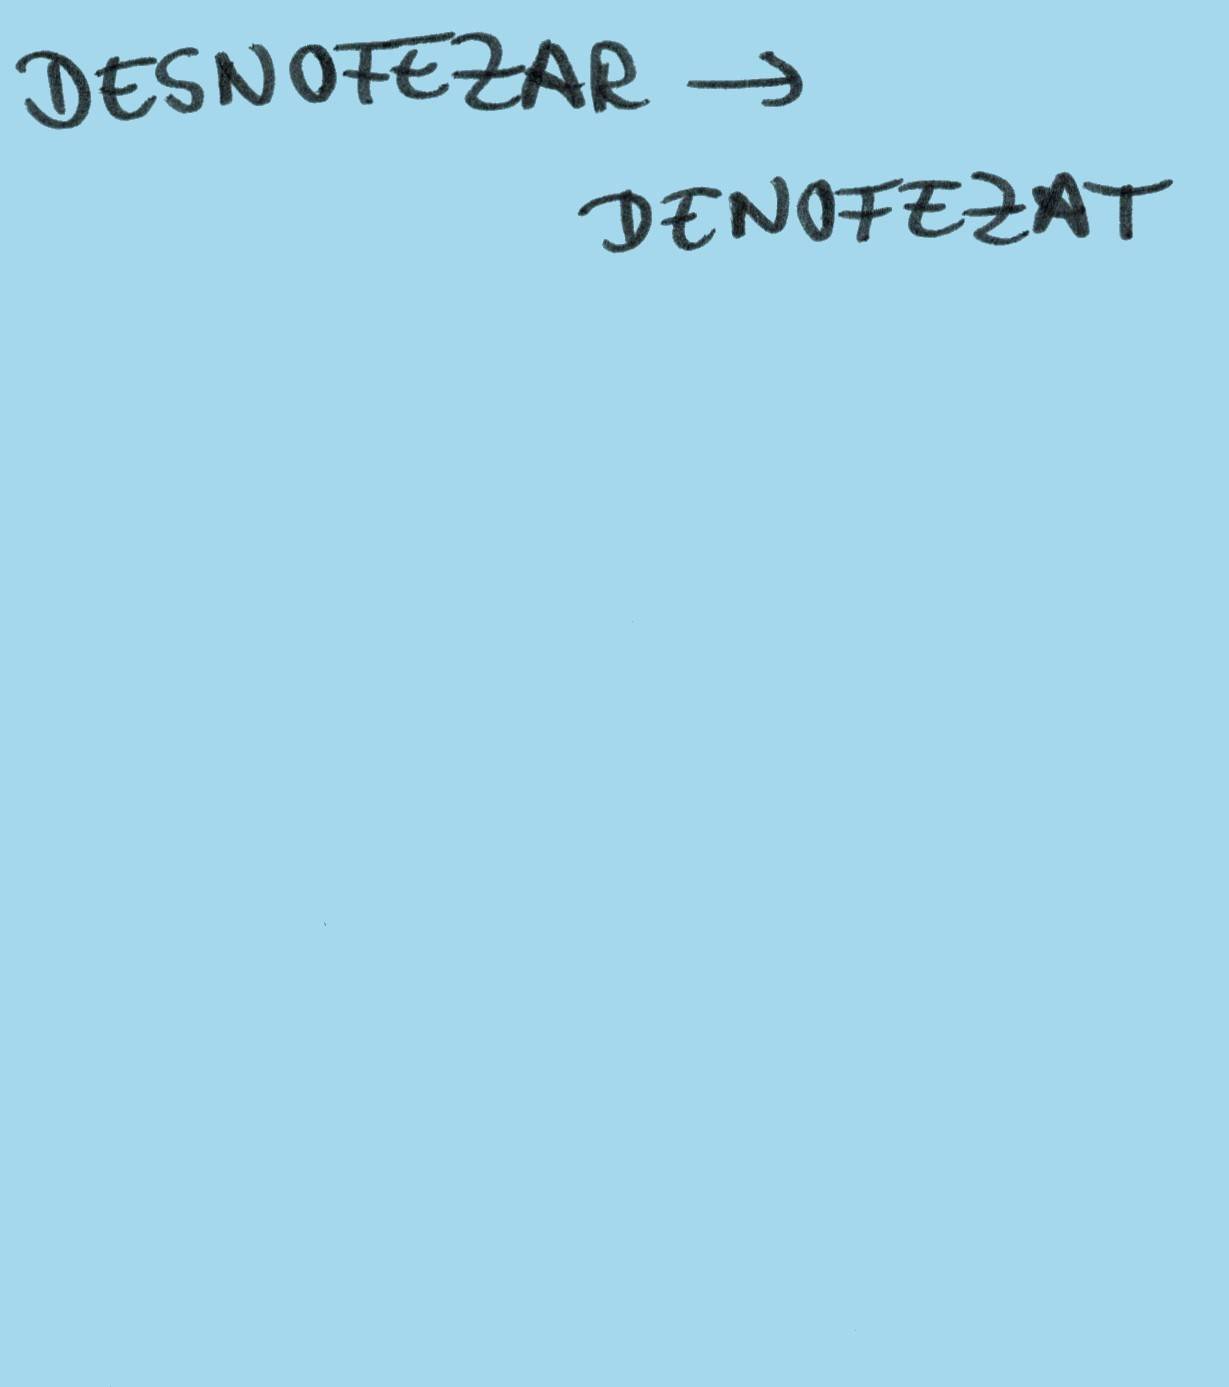 DESNOFEZAR →
DENOFEZAT